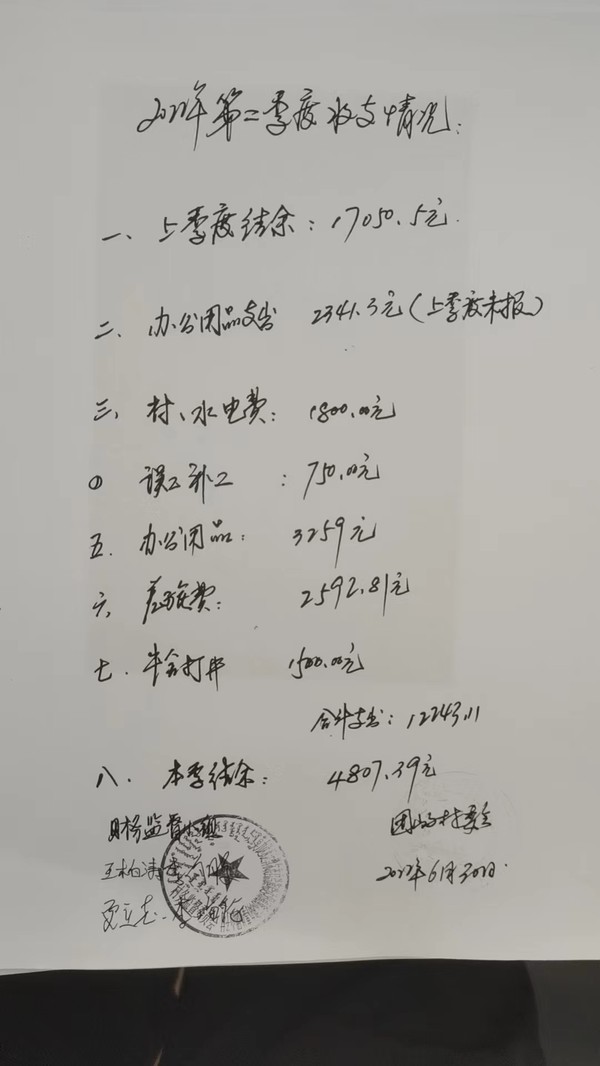 2022年第二季度收支情况:
一、上季度结余:17050.5元.
二、办公用品支出 2341.3元(上季度未报)
三、村、水电费:1800.00元
① 误工补工:750.00元
五.办公用品:3259元
六、差旅费:2592.81元
七.牛舍打井 1500.00元
合计支出:12243.11
八.本季结余:4807.39元
财务监督小组
村委会
王柏涛
2022年6月30日.